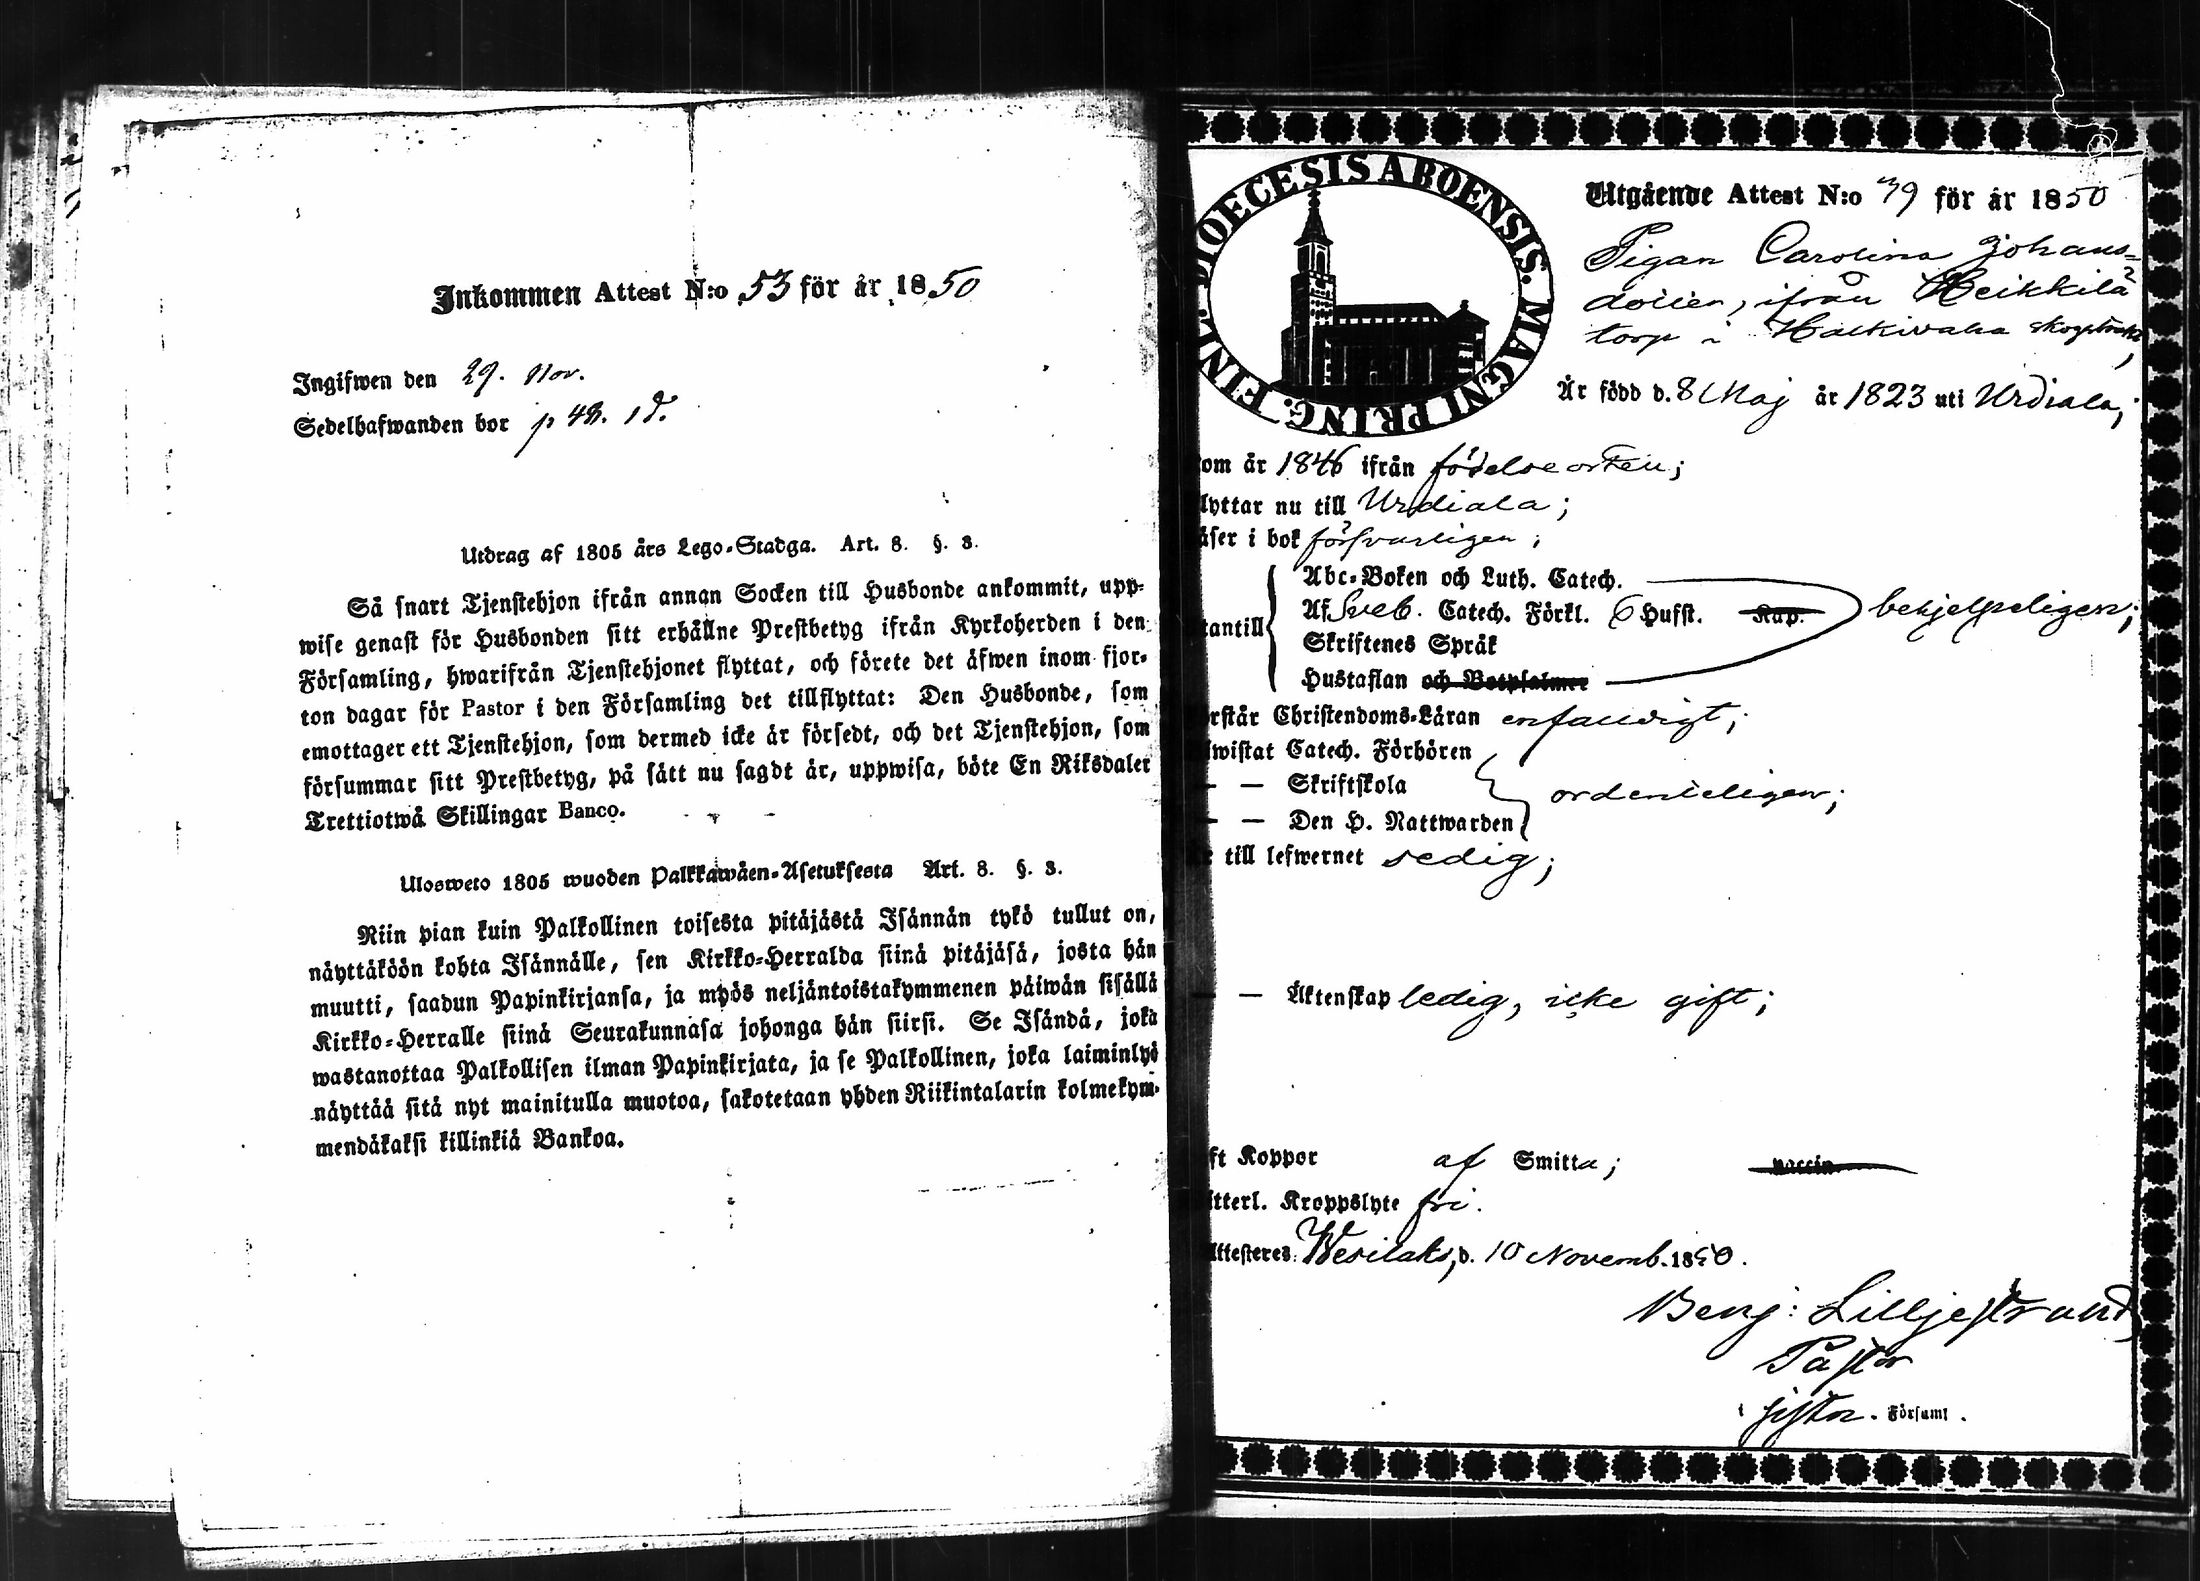 Inkommen Attest N:o 53 för år 1850
Ingifwen den 29. Nov.
Sedelhafwanden bor p 48. 1 d.
Utdrag af 1805 års Lego-Stadga. Art. 8. §. 3.
Så snart Tjenstehjon ifrån annan Socken till Husbonde ankommit, upp-
wise genast för Husbonden sitt erhållne Prestbetyg ifrån Kyrkoherden i den
Församling, hwarifrån Tjenstehjonet flyttat, och förete det äfwen inom fjor-
ton dagar för Pastor i den Församling det tillflyttat: Den Husbonde, som
emottager ett Tjenstehjon, som dermed icke är försedt, och det Tjenstehjon, som
försummar sitt Prestbetyg, på sätt nu sagdt är, uppwisa, böte En Riksdaler
Trettiotwå Skillingar Banco.
Ulosweto 1805 wuoden Palkkawäen-Asetuksesta Art. 8. §. 3.
Niin pian kuin Palkollinen toisesta pitäjästä Isännän tykö tullut on,
näyttäköön kohta Isännälle, sen Kirkko-Herralda siinä pitäjäsä, josta hän
muutti, saadun Papinkirjansa, ja myös neljäntoistakymmenen päiwän sisällä
Kirkko-Herralle siinä Seurakunnasa johonga hän siirsi. Se Isändä, joka
wastanottaa Palkollisen ilman Papinkirjata, ja se Palkollinen, joka laiminlyö
näyttää sitä nyt mainitulla muotoa, sakotetaan yhden Riikintalarin kolmekym-
mendäkaksi killinkiä Bankoa.
DIOECESIS ABOENSIS. MAGNI PRINC. FINL.
Utgående Attest N:o 39 för år 1850
Pigan Carolina Johans-
dotter, ifrån Heikkilä
torp i Halkivaha
Är född d. 8 Maj år 1823 uti Urdiala;
om år 1846 ifrån födelseorten;
lyttar nu till Urdiala;
äser i bok försvarligen;
tantill
Abc-Boken och Luth. Catech.
Af Sveb. Catech. Förkl. 6 Hufst. Kap. behjelpeligen;
Skriftenes Språk
Hustaflan och Botpsalmer
rstår Christendoms-Läran enfaldigt;
wistat Catech. Förhören
— — Skriftskola ordenteligen;
— — Den H. Nattwarden
till lefwernet sedig;
— — Äktenskap ledig, icke gift;
ft Koppor af Smitta; vaccin
tterl. Kroppslyte fri.
ttesteres Wesilaks, d. 10 Novemb. 1850.
Benj: Lilljestrand,
Pastor
i Församl.